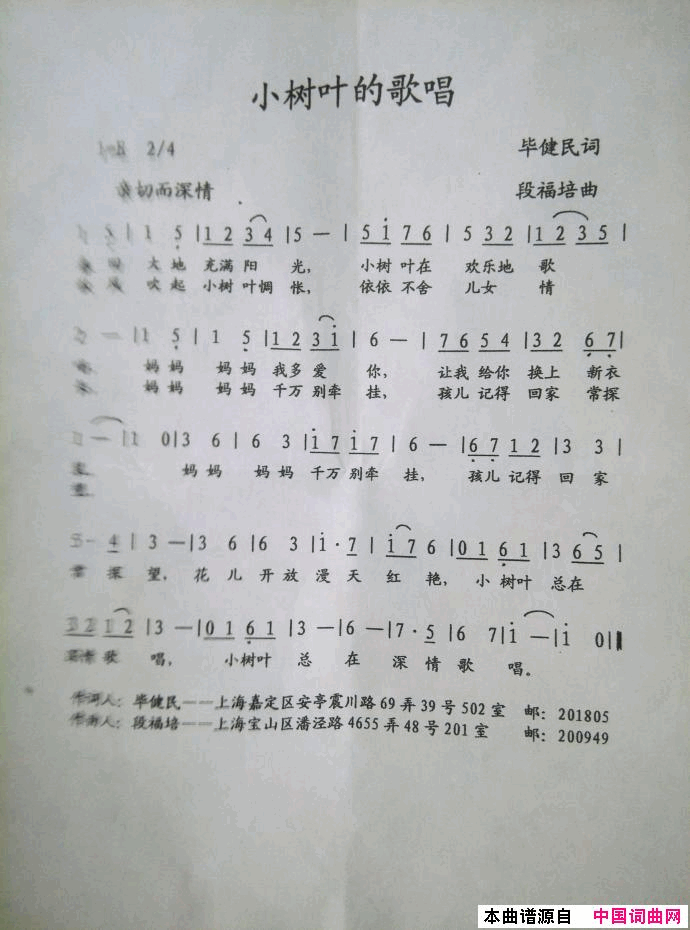 小树叶的歌唱
2/4 毕健民词
切而深情 段福培曲
1 5 | 1 2 3 4 | 5 — | 5 1 7 6 | 5 3 2 | 1 2 3 5 |
大地 充满 阳 光, 小树 叶在 欢乐地 歌
吹起 小树 叶惆 怅, 依依 不舍 儿女 情
— | 1 5 | 1 5 | 1 2 3 1 | 6 — | 7 6 5 4 | 3 2 6 7 |
妈妈 妈妈 我多 爱 你, 让我 给你 换上 新衣
妈妈 妈妈 千万 别牵 挂, 孩儿 记得 回家 常探
— | 1 0 | 3 6 | 6 3 | 1 7 1 7 | 6 — | 6 7 1 2 | 3 3 |
妈妈 妈妈 千万 别牵 挂, 孩儿 记得 回家
4 | 3 — | 3 6 | 6 3 | 1 · 7 | 1 7 6 | 0 1 6 1 | 3 6 5 |
探 望, 花儿 开放 漫天 红艳, 小树叶 总在
1 2 | 3 — | 0 1 6 1 | 3 — | 6 — | 7 · 5 | 6 7 | 1 — | 1 0 ‖
歌 唱, 小树叶 总 在 深情歌 唱。
作词人: 毕健民——上海嘉定区安亭震川路 69 弄 39 号 502 室 邮: 201805
作曲人: 段福培——上海宝山区潘泾路 4655 弄 48 号 201 室 邮: 200949
本曲谱源自 中国词曲网